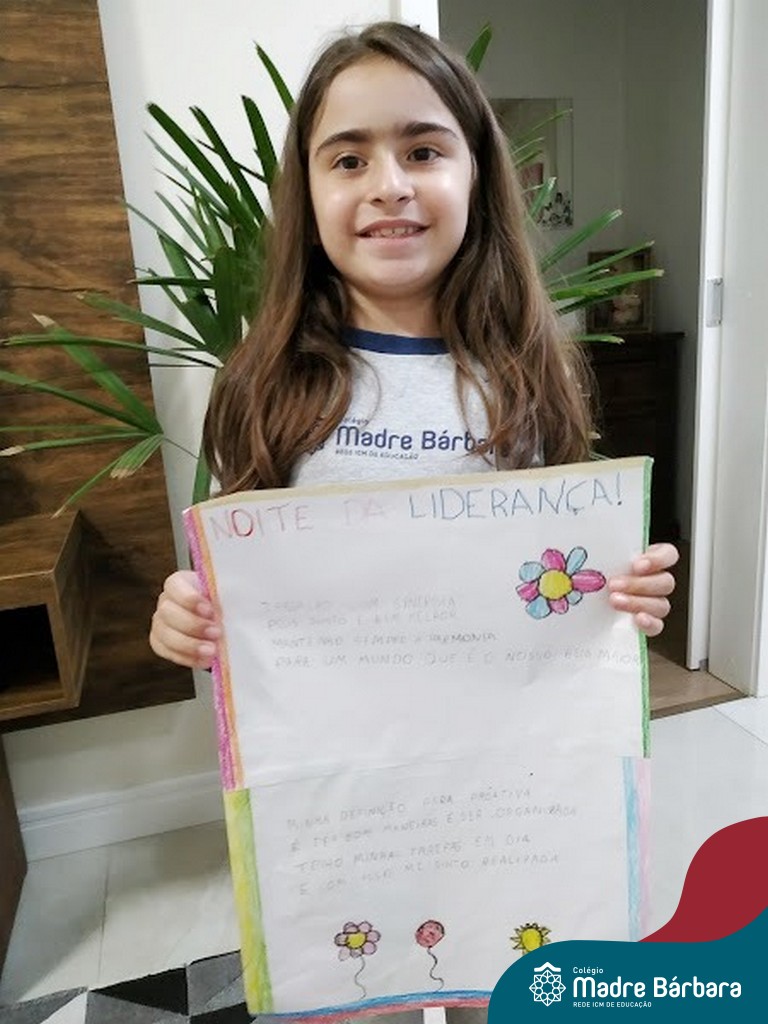 Colégio
Madre Bárbar
REDE ICM DE EDUCAÇÃO
NOITE DA LIDERANÇA!
TRABALHO COM SINERGIA
POIS JUNTO É BEM MELHOR
MANTENDO SEMPRE A HARMONIA
PARA UM MUNDO QUE É O NOSSO BEM MAIOR
MINHA DEFINIÇÃO PARA PROATIVA
É TER BOM MANEIRAS E SER ORGANIZADA
TENHO MINHAS TAREFAS EM DIA
E COM ISSO ME SINTO REALIZADA
Colégio
Madre Bárbara
REDE ICM DE EDUCAÇÃO